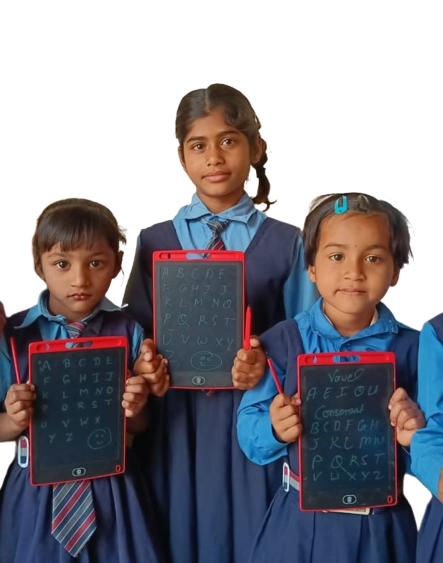 A B C D E
F G H I J
K L M N O
P Q R S T
U V W X
Y Z
A B C D E
F G H I J
K L M N O
P Q R S T
Vowel
A E I O U
Consonant
B C D F G H
J K L M N
P Q R S T
V W X Y Z